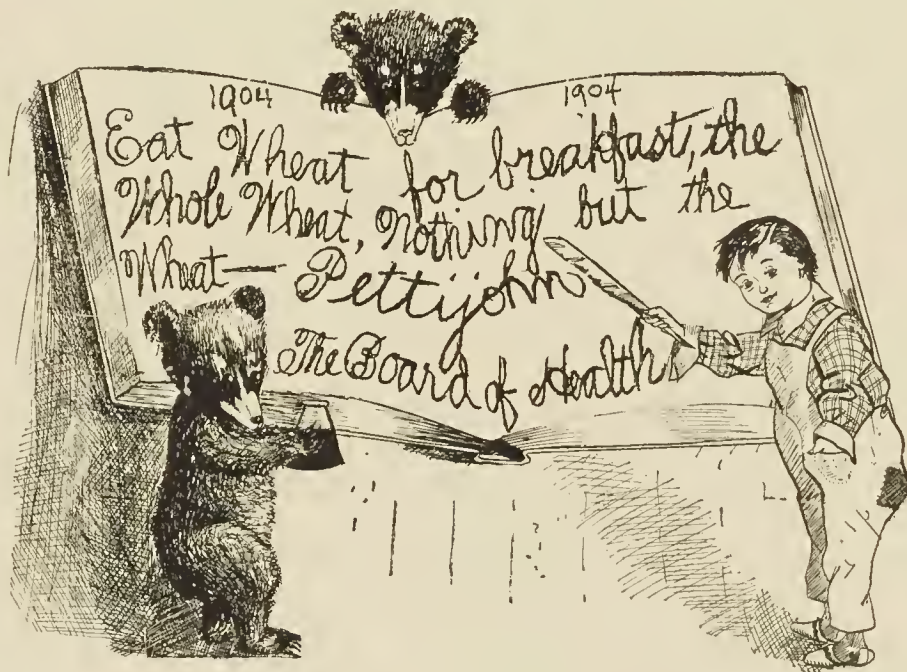 1904 1904
Eat Wheat for breakfast, the
Whole Wheat, Nothing but the
Wheat— Pettijohn
The Board of Health